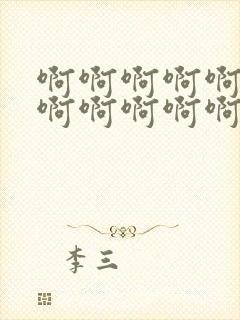 啊啊啊啊啊
啊啊啊啊啊
李三